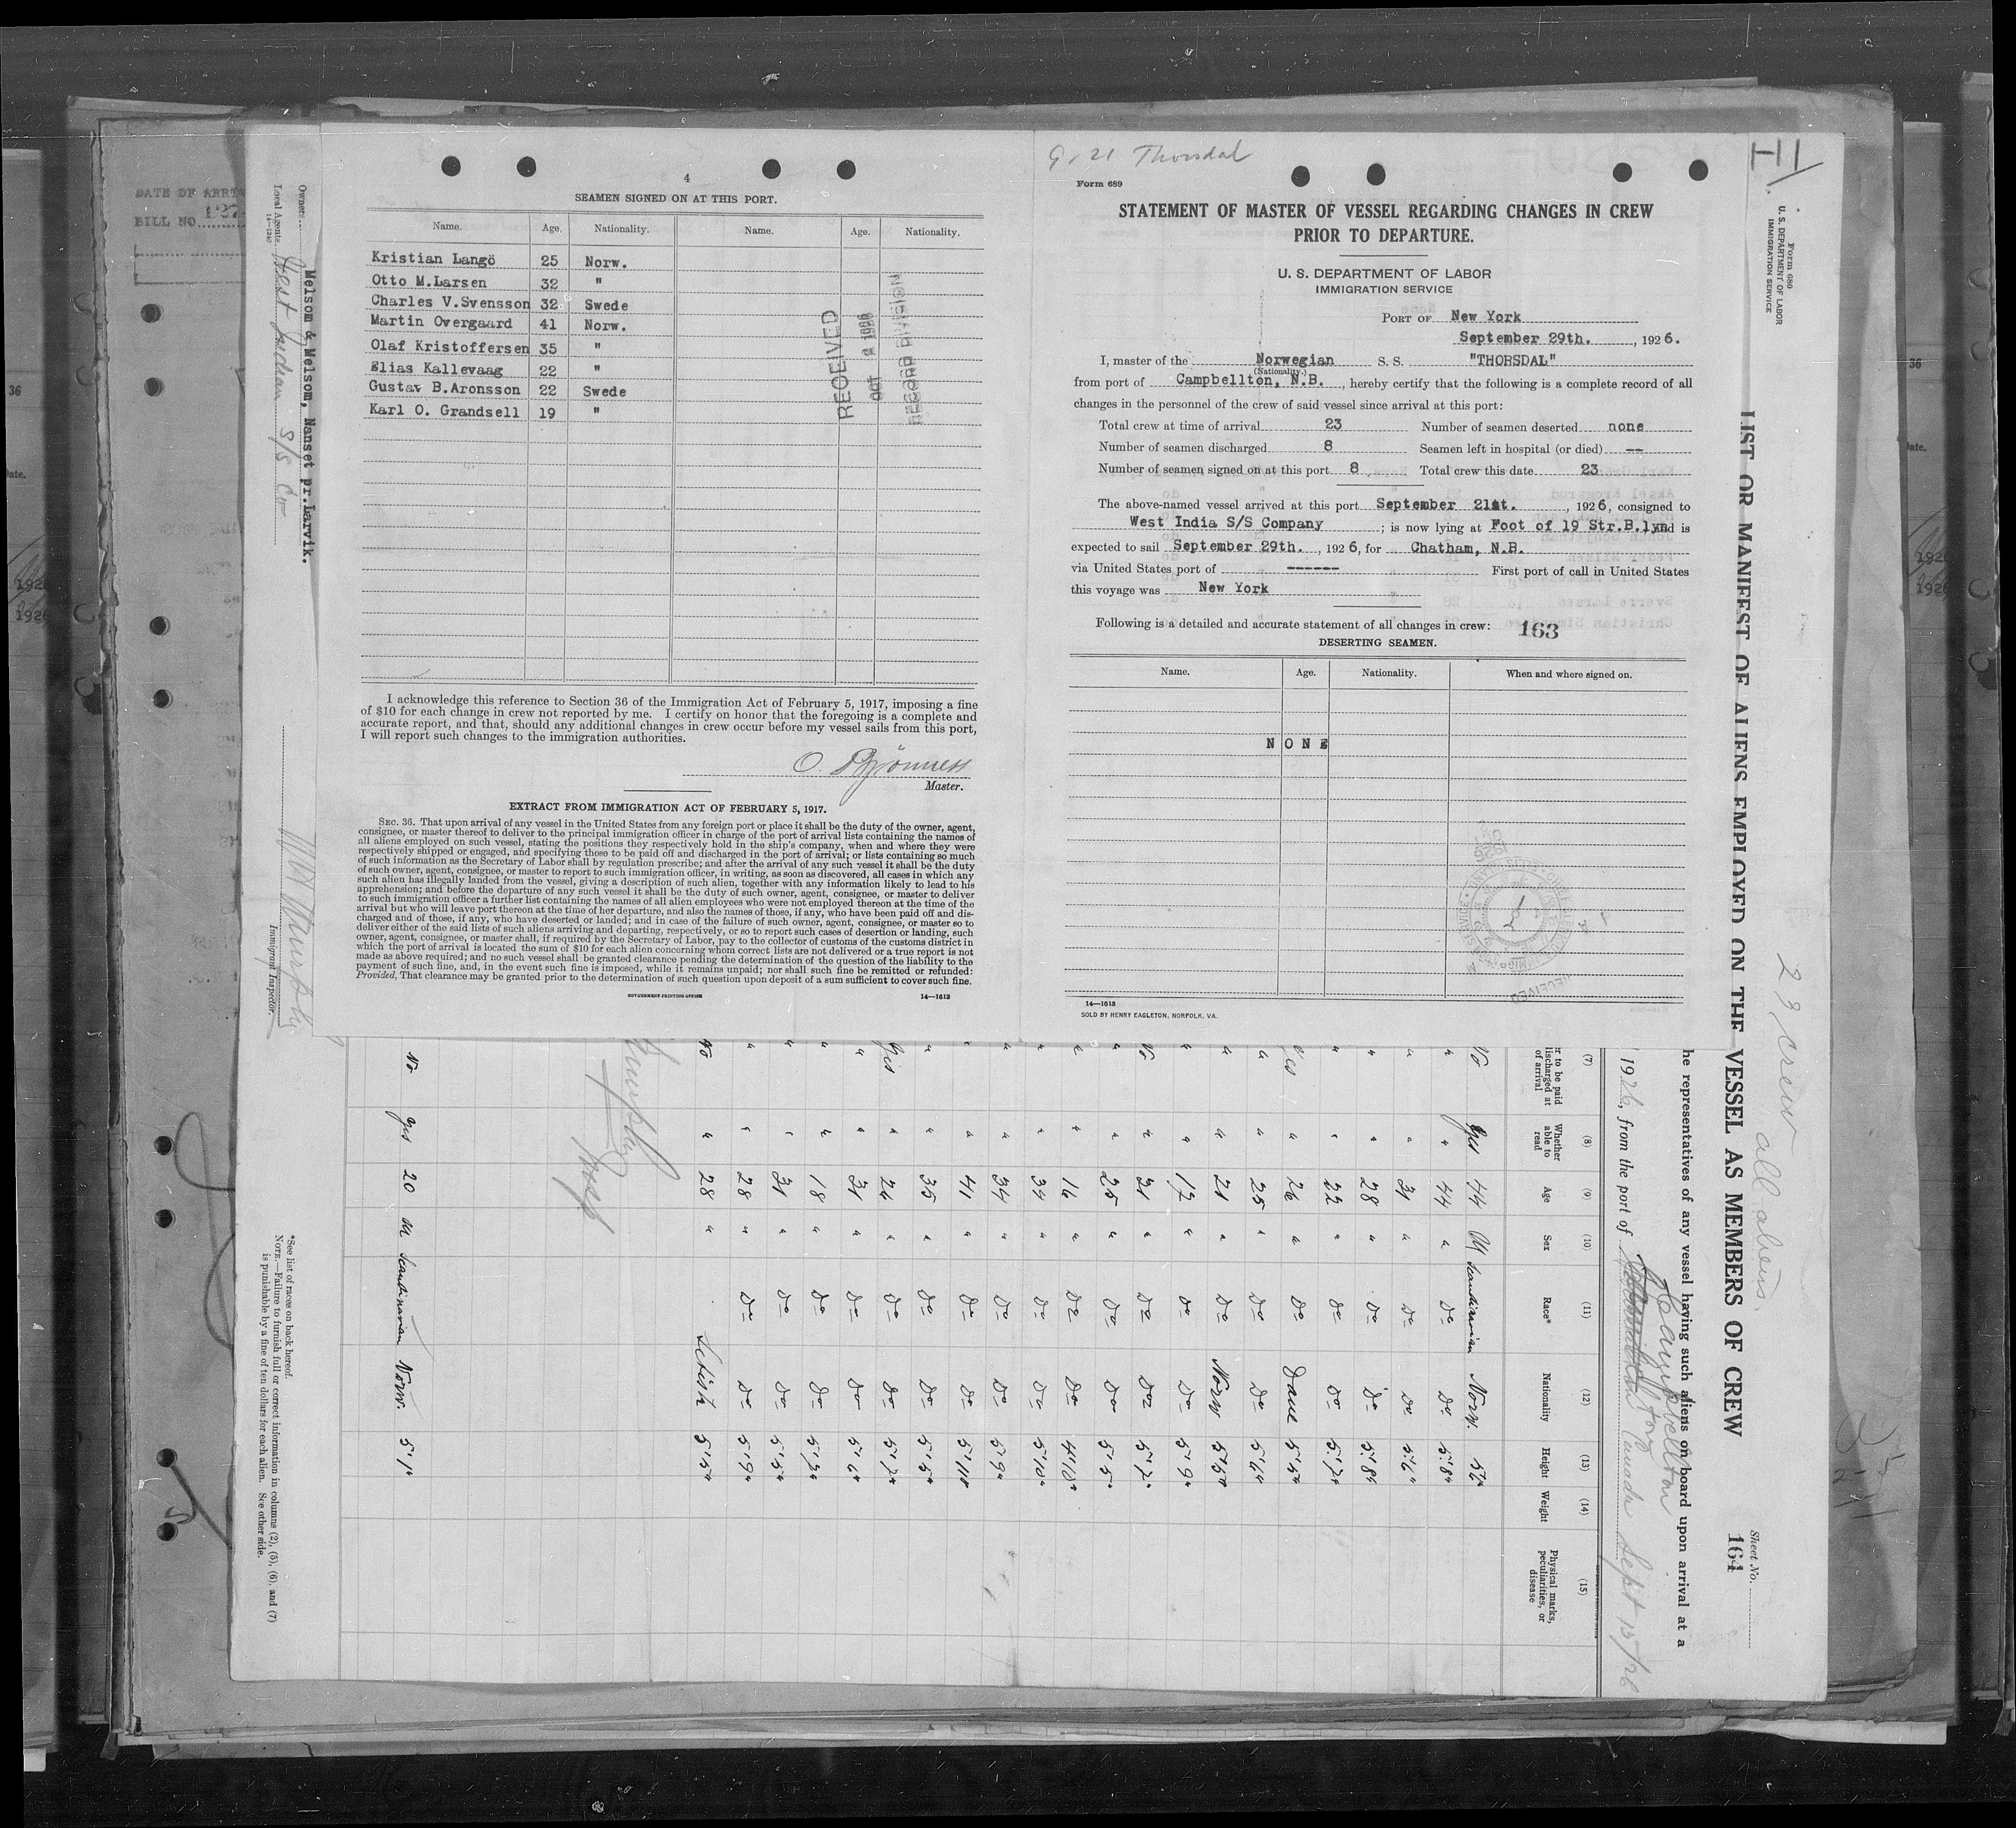 4
SEAMEN SIGNED ON AT THIS PORT.
Name. Age. Nationality. Name. Age. Nationality.
Kristian Langö 25 Norw.
Otto M.Larsen 32 "
Charles V.Svensson 32 Swede
Martin Overgaard 41 Norw.
Olaf Kristoffersen 35 "
Elias Kallevaag 22 "
Gustav B.Aronsson 22 Swede
Karl O. Grandsell 19 "
RECEIVED
RECORD DIVISION
I acknowledge this reference to Section 36 of the Immigration Act of February 5, 1917, imposing a fine
of $10 for each change in crew not reported by me. I certify on honor that the foregoing is a complete and
accurate report, and that, should any additional changes in crew occur before my vessel sails from this port,
I will report such changes to the immigration authorities.
O. Bjönness
Master.
EXTRACT FROM IMMIGRATION ACT OF FEBRUARY 5, 1917.
SEC. 36. That upon arrival of any vessel in the United States from any foreign port or place it shall be the duty of the owner, agent,
consignee, or master thereof to deliver to the principal immigration officer in charge of the port of arrival lists containing the names of
all aliens employed on such vessel, stating the positions they respectively hold in the ship's company, when and where they were
respectively shipped or engaged, and specifying those to be paid off and discharged in the port of arrival; or lists containing so much
of such information as the Secretary of Labor shall by regulation prescribe; and after the arrival of any such vessel it shall be the duty
of such owner, agent, consignee, or master to report to such immigration officer, in writing, as soon as discovered, all cases in which any
such alien has illegally landed from the vessel, giving a description of such alien, together with any information likely to lead to his
apprehension; and before the departure of any such vessel it shall be the duty of such owner, agent, consignee, or master to deliver
to such immigration officer a further list containing the names of all alien employees who were not employed thereon at the time of the
arrival but who will leave port thereon at the time of her departure, and also the names of those, if any, who have been paid off and dis-
charged and of those, if any, who have deserted or landed; and in case of the failure of such owner, agent, consignee, or master so to
deliver either of the said lists of such aliens arriving and departing, respectively, or so to report such cases of desertion or landing, such
owner, agent, consignee, or master shall, if required by the Secretary of Labor, pay to the collector of customs of the customs district in
which the port of arrival is located the sum of $10 for each alien concerning whom correct lists are not delivered or a true report is not
made as above required; and no such vessel shall be granted clearance pending the determination of the question of the liability to the
payment of such fine, and, in the event such fine is imposed, while it remains unpaid; nor shall such fine be remitted or refunded:
Provided, That clearance may be granted prior to the determination of such question upon deposit of a sum sufficient to cover such fine.
GOVERNMENT PRINTING OFFICE 14—1613
9/21 Thorsdal
Form 689
STATEMENT OF MASTER OF VESSEL REGARDING CHANGES IN CREW
PRIOR TO DEPARTURE.
U. S. DEPARTMENT OF LABOR
IMMIGRATION SERVICE
PORT OF New York
September 29th. , 1926.
I, master of the Norwegian S. S. "THORSDAL"
(Nationality.)
from port of Campbellton, N.B. , hereby certify that the following is a complete record of all
changes in the personnel of the crew of said vessel since arrival at this port:
Total crew at time of arrival 23 Number of seamen deserted none
Number of seamen discharged 8 Seamen left in hospital (or died) --
Number of seamen signed on at this port 8 Total crew this date 23
The above-named vessel arrived at this port September 21st. , 1926, consigned to
West India S/S Company ; is now lying at Foot of 19 Str.B.lyn and is
expected to sail September 29th. , 1926, for Chatham, N.B.
via United States port of ------ First port of call in United States
this voyage was New York
Following is a detailed and accurate statement of all changes in crew: 163
DESERTING SEAMEN.
Name. Age. Nationality. When and where signed on.
NONE
14—1613
SOLD BY HENRY EAGLETON, NORFOLK, VA.
Form 689
U. S. DEPARTMENT OF LABOR
IMMIGRATION SERVICE
LIST OR MANIFEST OF ALIENS EMPLOYED ON THE VESSEL AS MEMBERS OF CREW
Sheet No.
164
23 crew all aliens.
he representatives of any vessel having such aliens on board upon arrival at a
Campbellton
1926, from the port of Canada Sept 15/26
(7) (8) (9) (10) (11) (12) (13) (14) (15)
r to be paid
discharged at
of arrival
Whether
able to
read
Age
Sex
Race*
Nationality
Height
Weight
Physical marks,
peculiarities, or
disease
No Yes 44 M Scandinavian Norw.
" " 44 " Do Do 5'8"
" " 31 " Do Do 5'6"
" " 28 " Do Do 5'8"
" " 22 " Do Do 5'7"
Yes " 26 " Do Dane 5'5"
" " 25 " Do Do 5'6"
" " 21 " Do Norw 5'5"
" " 17 " Do Do 5'9"
No " 31 " Do Do 5'7"
" " 25 " Do Do 5'5"
" " 16 " Do Do 4'10"
" " 34 " Do Do 5'10"
" " 34 " Do Do 5'9"
" " 41 " Do Do 5'11"
" " 35 " Do Do 5'5"
Yes " 26 " Do Do 5'7"
" " 31 " Do Do 5'6"
" " 18 " Do Do 5'3"
" " 31 " Do Do 5'5"
" " 28 " Do Do 5'9"
No " 28 " Lettish 5'5"
No Yes 20 M Scandinavian Norw. 5'1"
*See list of races on back hereof.
NOTE.—Failure to furnish full or correct information in columns (2), (5), (6), and (7)
is punishable by a fine of ten dollars for each alien. See other side.
Owners Melsom & Melsom, Nanset pr.Larvik.
Local Agents West Indian S/S Co
14—1240
Immigrant Inspector.
DATE OF ARRIV
BILL NO